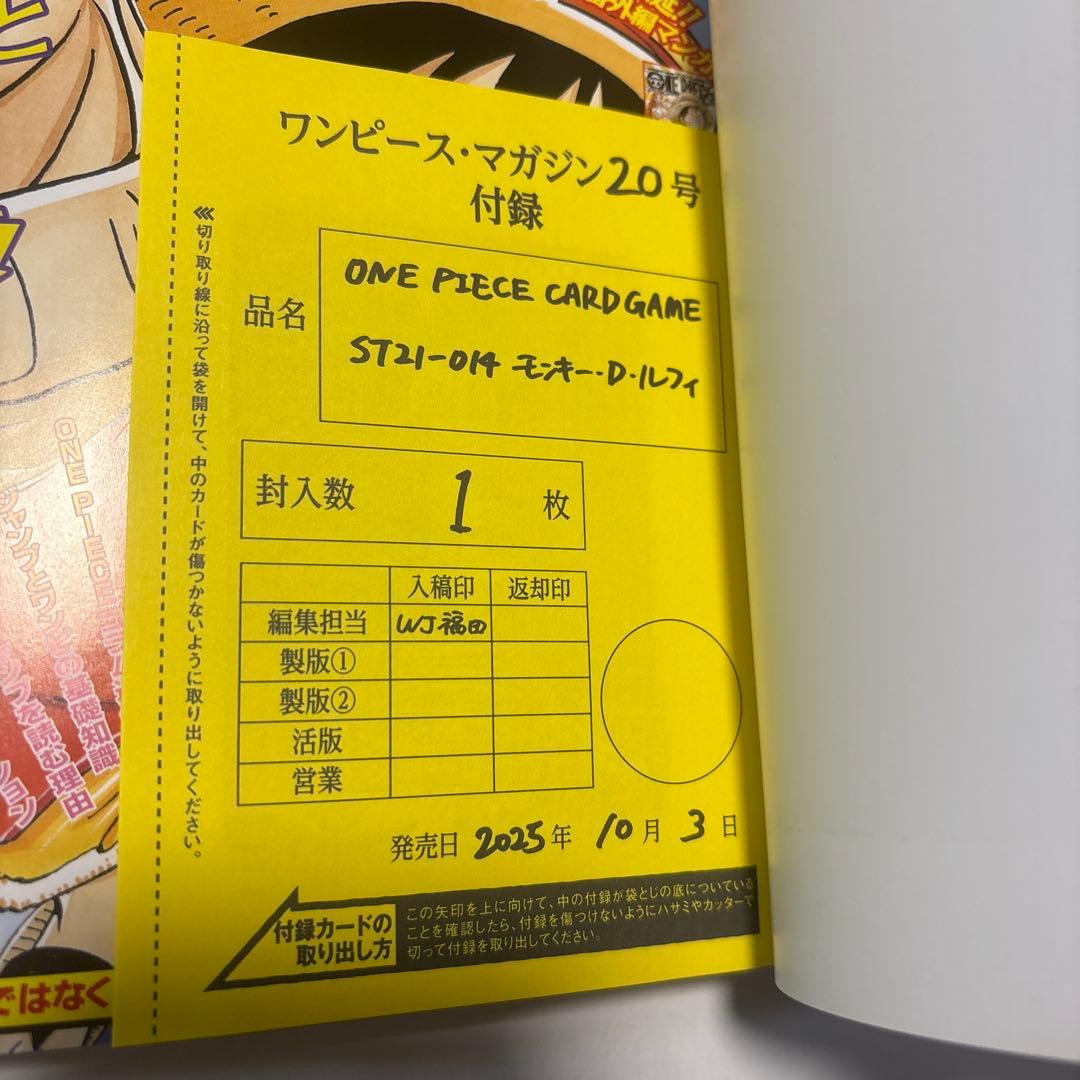 ワンピース・マガジン20号
付録
品名
ONE PIECE CARD GAME
ST21-014 モンキー・D・ルフィ
封入数 1 枚
入稿印 返却印
編集担当 WJ福田
製版①
製版②
活版
営業
発売日 2025年 10月 3日
付録カードの
取り出し方
この矢印を上に向けて、中の付録が袋とじの底についている
ことを確認したら、付録を傷つけないようにハサミやカッターで
切って付録を取り出してください。
切り取り線に沿って袋を開けて、中のカードが傷つかないように取り出してください。
外編マンガ
ONE PIECE
の基礎知識
を読む理由
ション
ではなく